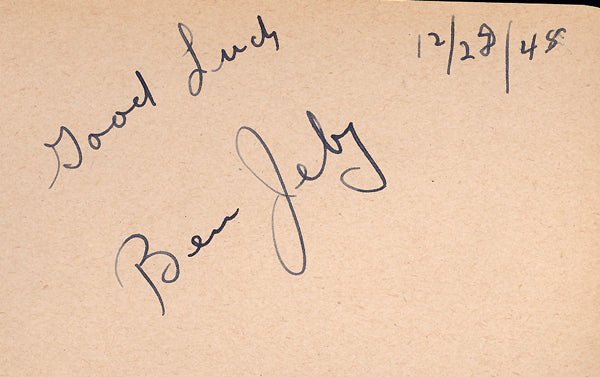 12/28/48
Good Luck
Ben Jeby